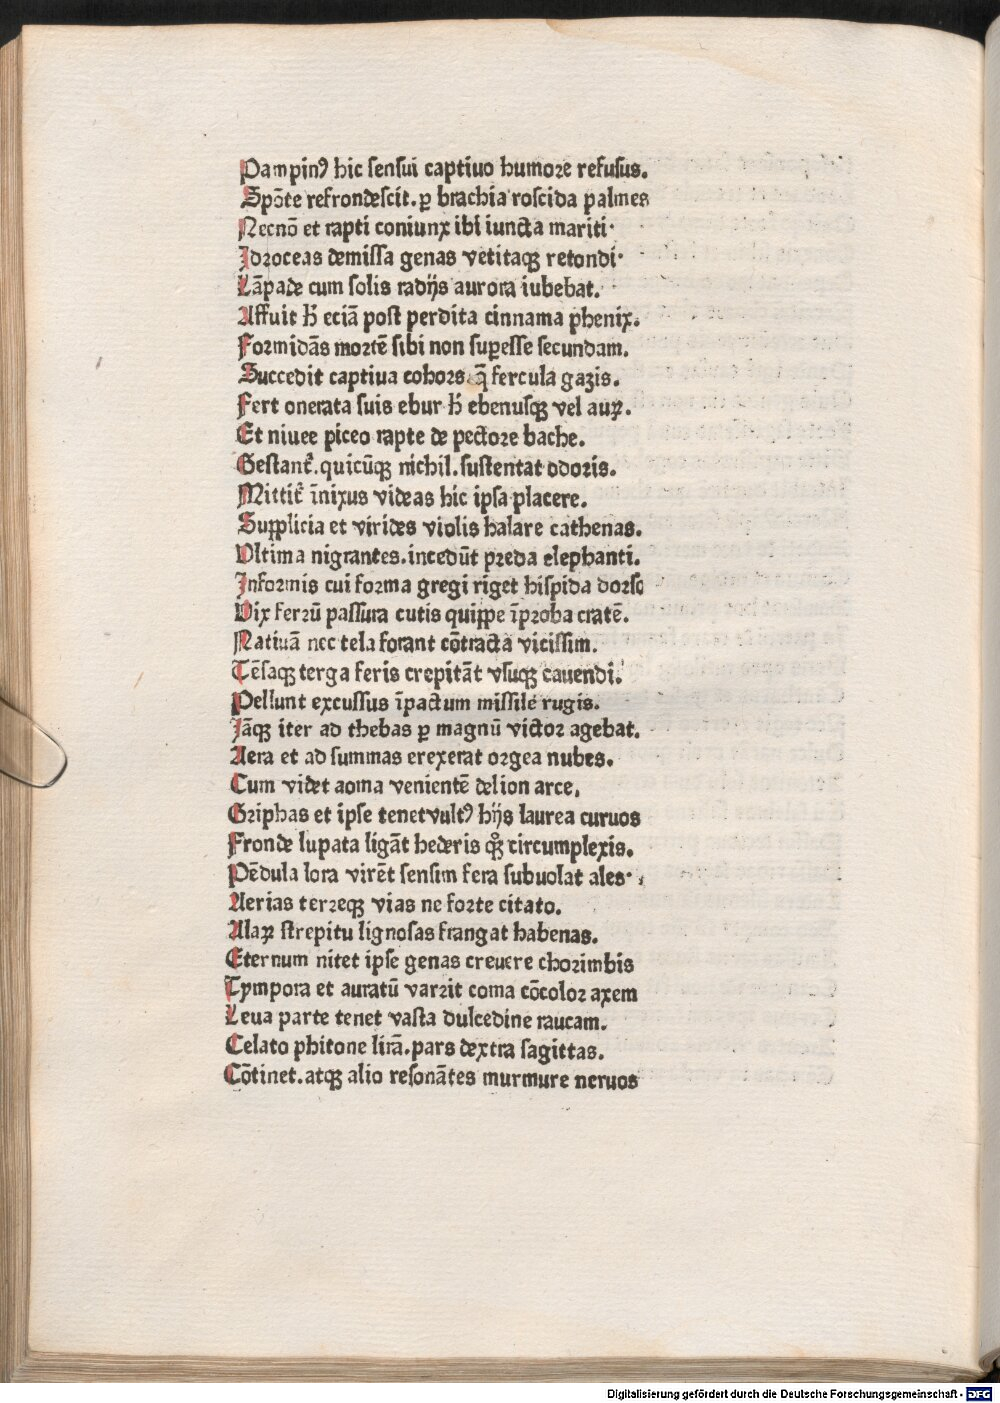 Pampinꝰ hic sensui captiuo humore refusus.
Spōte refrondescit. ꝑ brachia roscida palmes
Necnō et rapti coniunx ibi iuncta mariti·
Idroceas demissa genas vetitaqꝫ retondi·
Lāpade cum solis radijs aurora iubebat.
Affuit ħ eciā post perdita cinnama phenix.
Formidās mortē sibi non suꝑesse secundam.
Succedit captiua cohors. q̄ fercula gazis.
Fert onerata suis ebur ħ ebenusqꝫ vel auꝝ.
Et niuee piceo rapte de pectore bache.
Gestant᷑. quicūqꝫ nichil. sustentat odoris.
Mittit᷑ īnixus videas hic ipsa placere.
Supplicia et virides violis halare cathenas.
Vltima nigrantes. incedūt preda elephanti.
Informis cui forma gregi riget hispida dorso
Vix ferrū passura cutis quippe īproba cratē.
Natiuā nec tela forant cōtracta vicissim.
Tēsaqꝫ terga feris crepitāt vsuqꝫ cauendi.
Pellunt excussus īpactum missile rugis.
Jāqꝫ iter ad thebas ꝑ magnū victor agebat.
Aera et ad summas erexerat orgea nubes.
Cum videt aoma venientē delion arce.
Griphas et ipse tenet vultꝰ hijs laurea curuos
Fronde lupata ligāt hederis qꝫ circumplexis.
Pēdula lora virēt sensim fera subuolat ales·
Aerias terreqꝫ vias ne forte citato.
Alaꝝ strepitu lignosas frangat habenas.
Eternum nitet ipse genas creuere chorimbis
Tympora et auratū varrit coma cōcolor axem
Leua parte tenet vasta dulcedine raucam.
Celato phitone lirā. pars dextra sagittas.
Cōtinet. atqꝫ alio resonātes murmure neruos
Digitalisierung gefördert durch die Deutsche Forschungsgemeinschaft - DFG